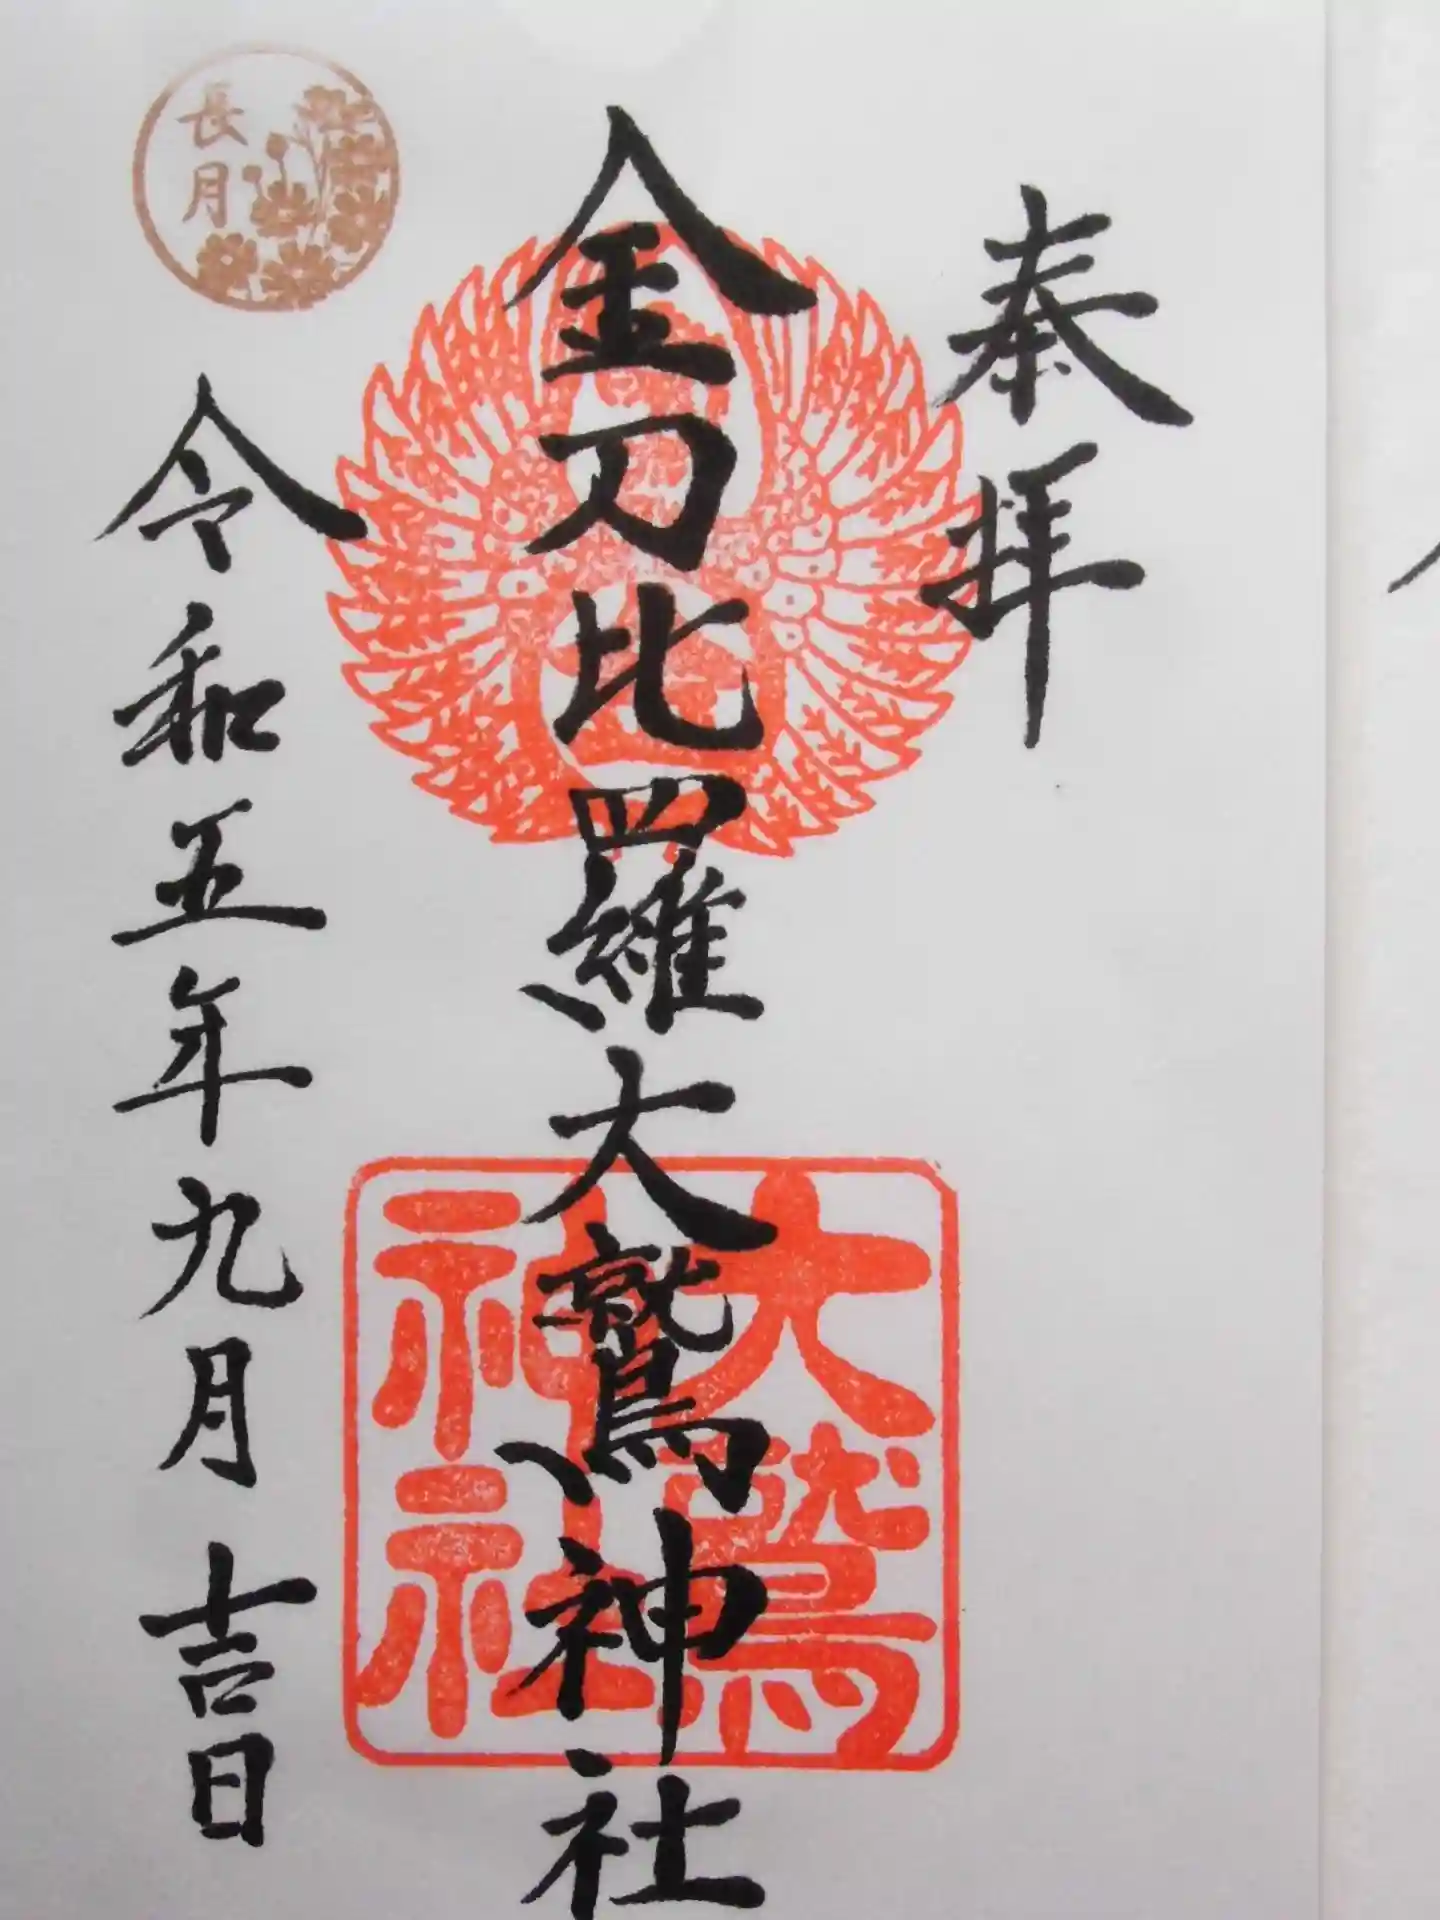 奉拝
金刀比羅大鷲神社
大鷲
神社
長月
令和五年九月吉日